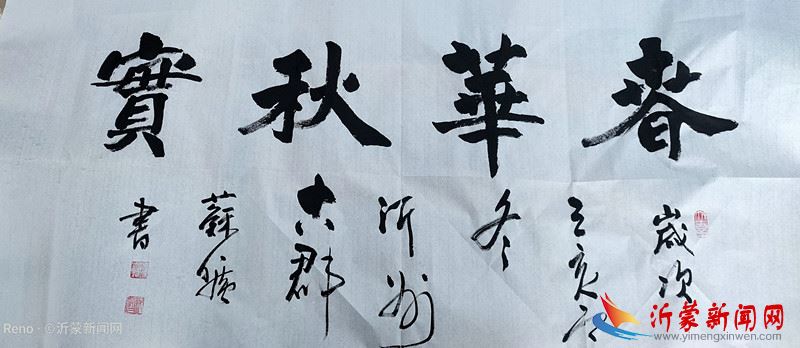 春華秋實
歲次
冬
沂州
古郡
蘇
書
Reno · ©沂蒙新闻网
沂蒙新闻网
www.yimengxinwen.com